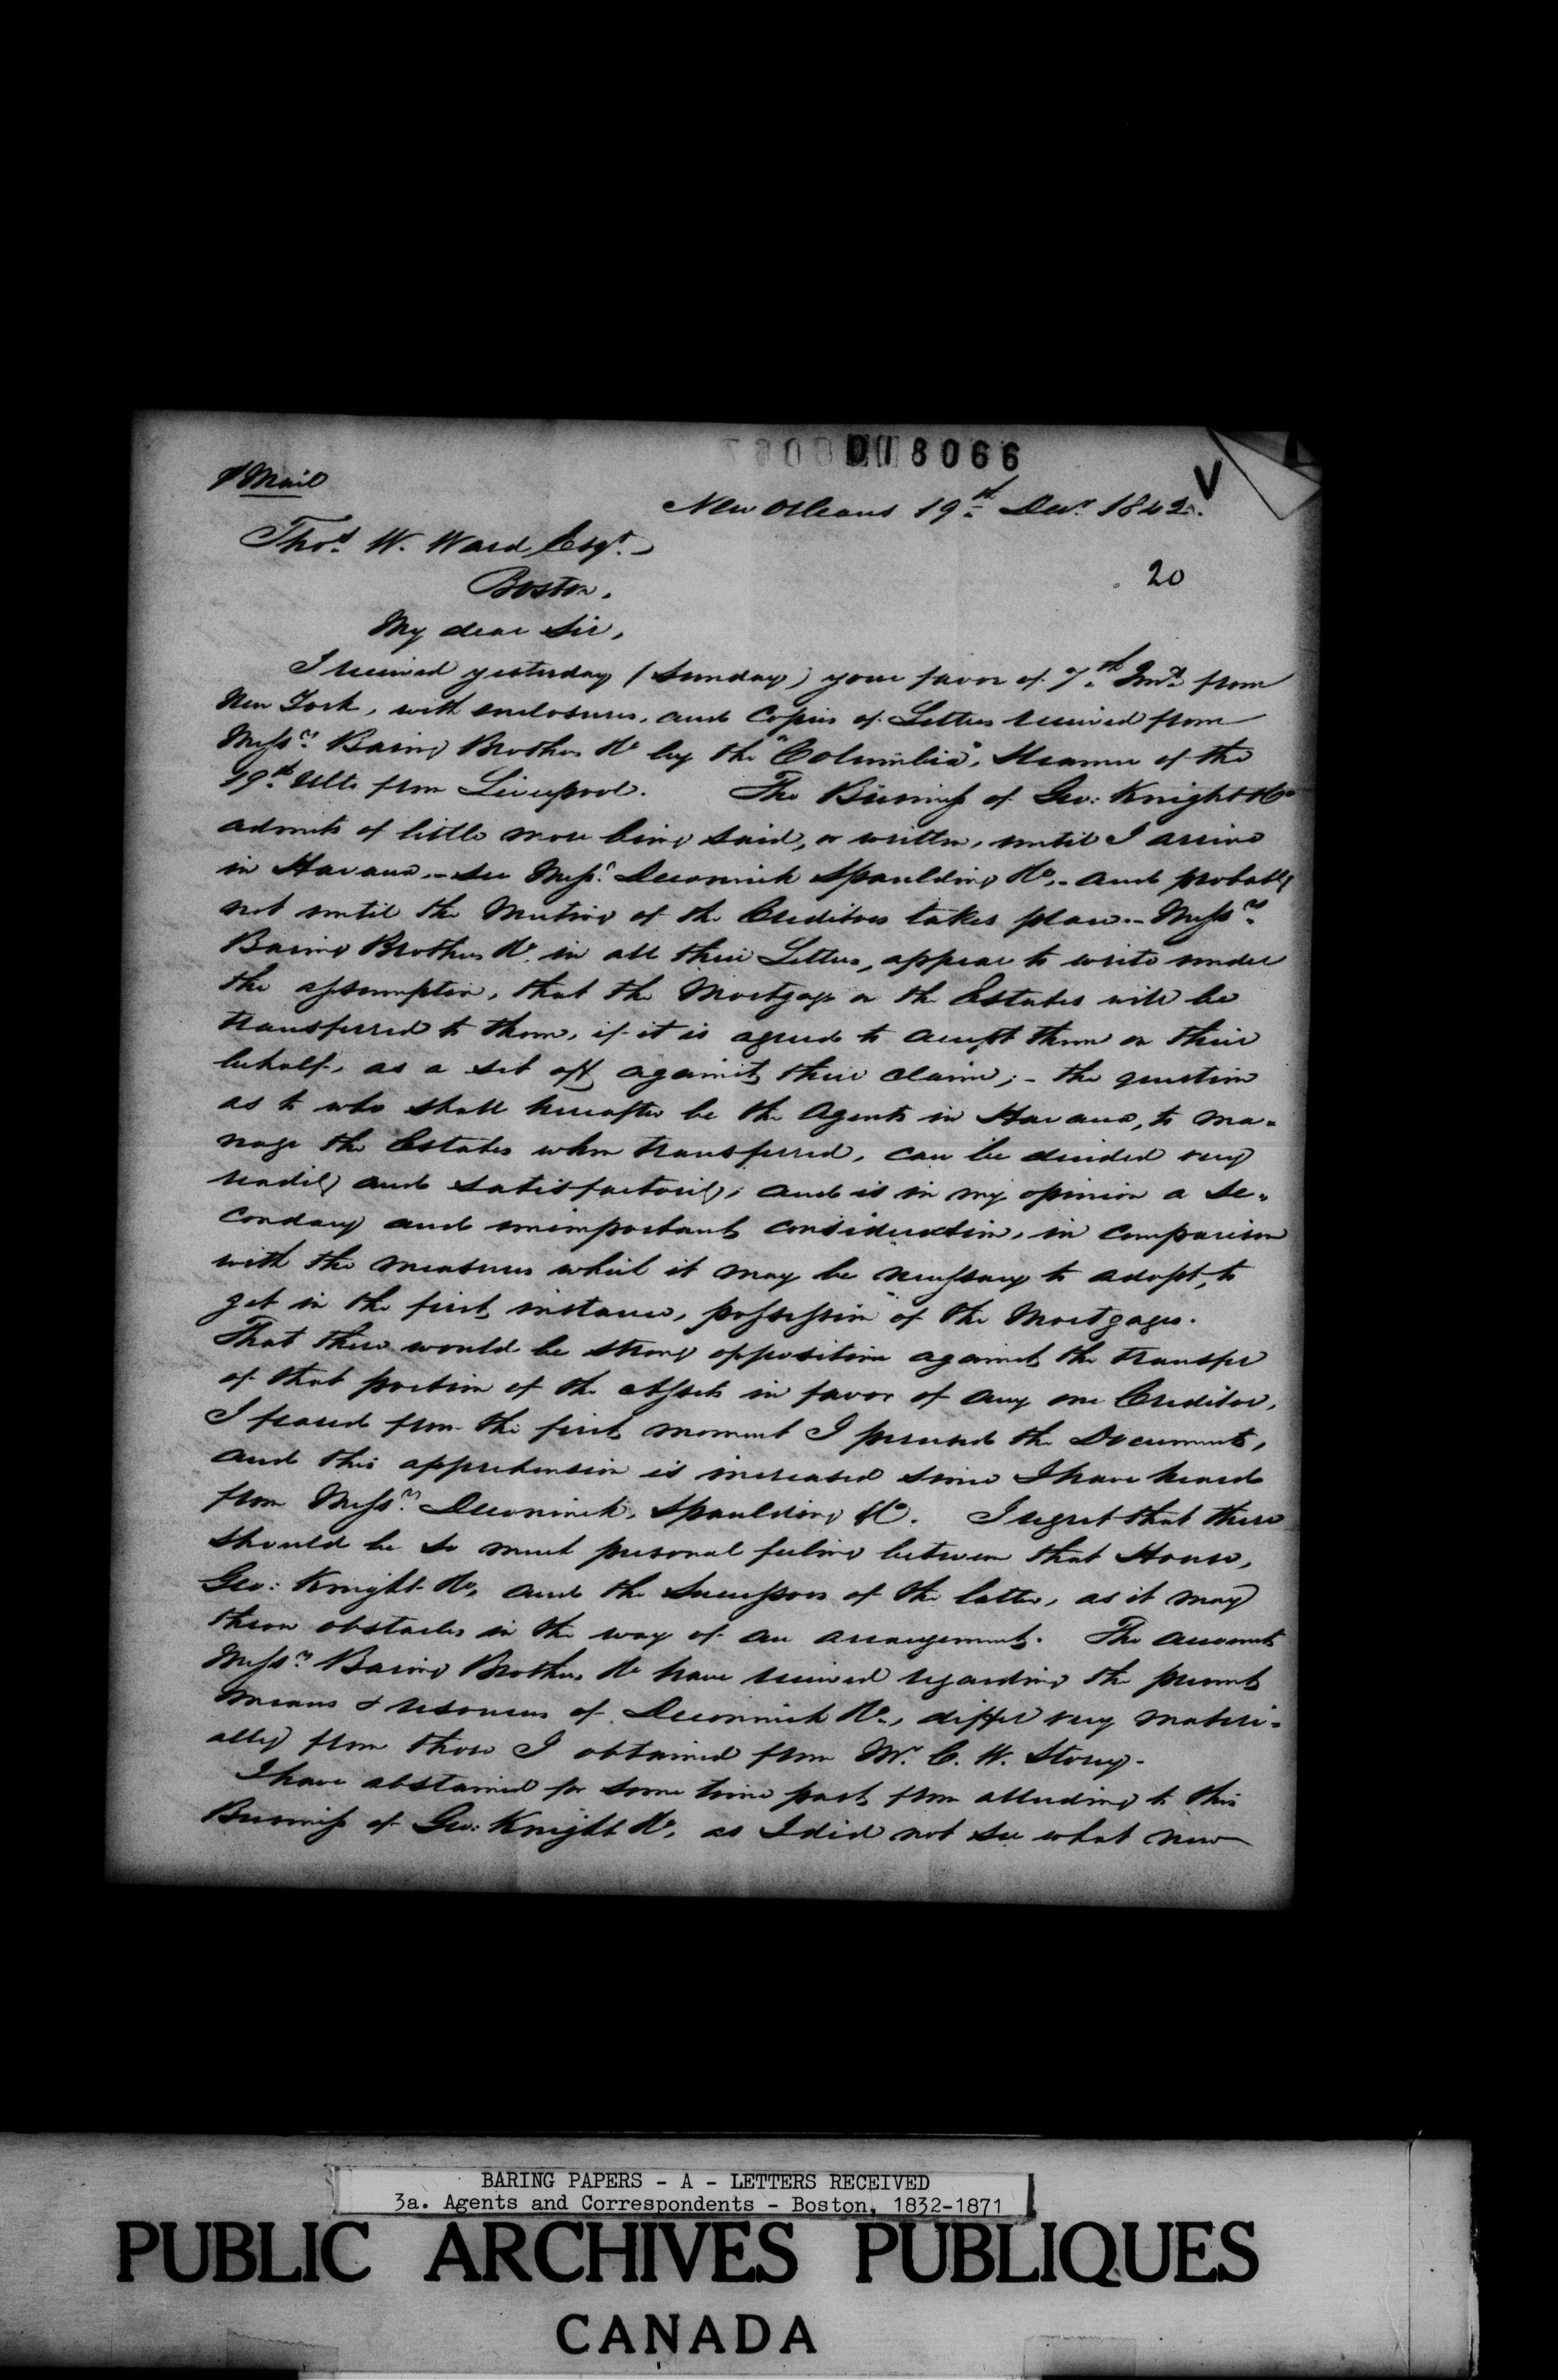 018066
℘ Mail
New Orleans 19th Decr. 1842.
20
Thos. W. Ward Esqr.
Boston.
My dear Sir,
I received yesterday (Sunday) your favor of 7th Inst. from
New York, with enclosures, and Copies of Letters received from
Messrs. Baring Brothers & Co by the "Columbia", Steamer of the
19th Ulto from Liverpool. The Business of Geo: Knight & Co
admits of little more being said, or written, until I arrive
in Havana, - see Messrs. Deconinck Spaulding & Co, - and probably
not until the Meeting of the Creditors takes place. - Messrs.
Baring Brothers & Co. in all their Letters, appear to write under
the assumption, that the Mortgage on the Estates will be
transferred to them, if it is agreed to accept them on their
behalf, as a set off against their claim; - the question
as to who shall hereafter be the Agents in Havana, to ma-
nage the Estates when transferred, can be decided very
readily and satisfactorily, and is in my opinion a se-
condary and unimportant consideration, in comparison
with the measures which it may be necessary to adopt, to
get in the first instance, "possession" of the Mortgages.
That there would be strong opposition against the transfer
of that portion of the Assets in favor of any one Creditor,
I feared from the first moment I perused the Documents,
and this apprehension is increased since I have heard
from Messrs. Deconinck, Spaulding & Co. I regret that there
should be so much personal feeling between that House,
Geo: Knight & Co, and the Successors of the latter, as it may
throw obstacles in the way of an arrangement. The accounts
Messrs. Baring Brothers & Co have received regarding the present
means & resources of Deconinck & Co, differ very materi-
ally from those I obtained from Mr. C. W. Storey.
I have abstained for some time past from alluding to this
Business of Geo: Knight & Co, as I did not see what new
BARING PAPERS - A - LETTERS RECEIVED
3a. Agents and Correspondents - Boston, 1832-1871
PUBLIC ARCHIVES PUBLIQUES
CANADA